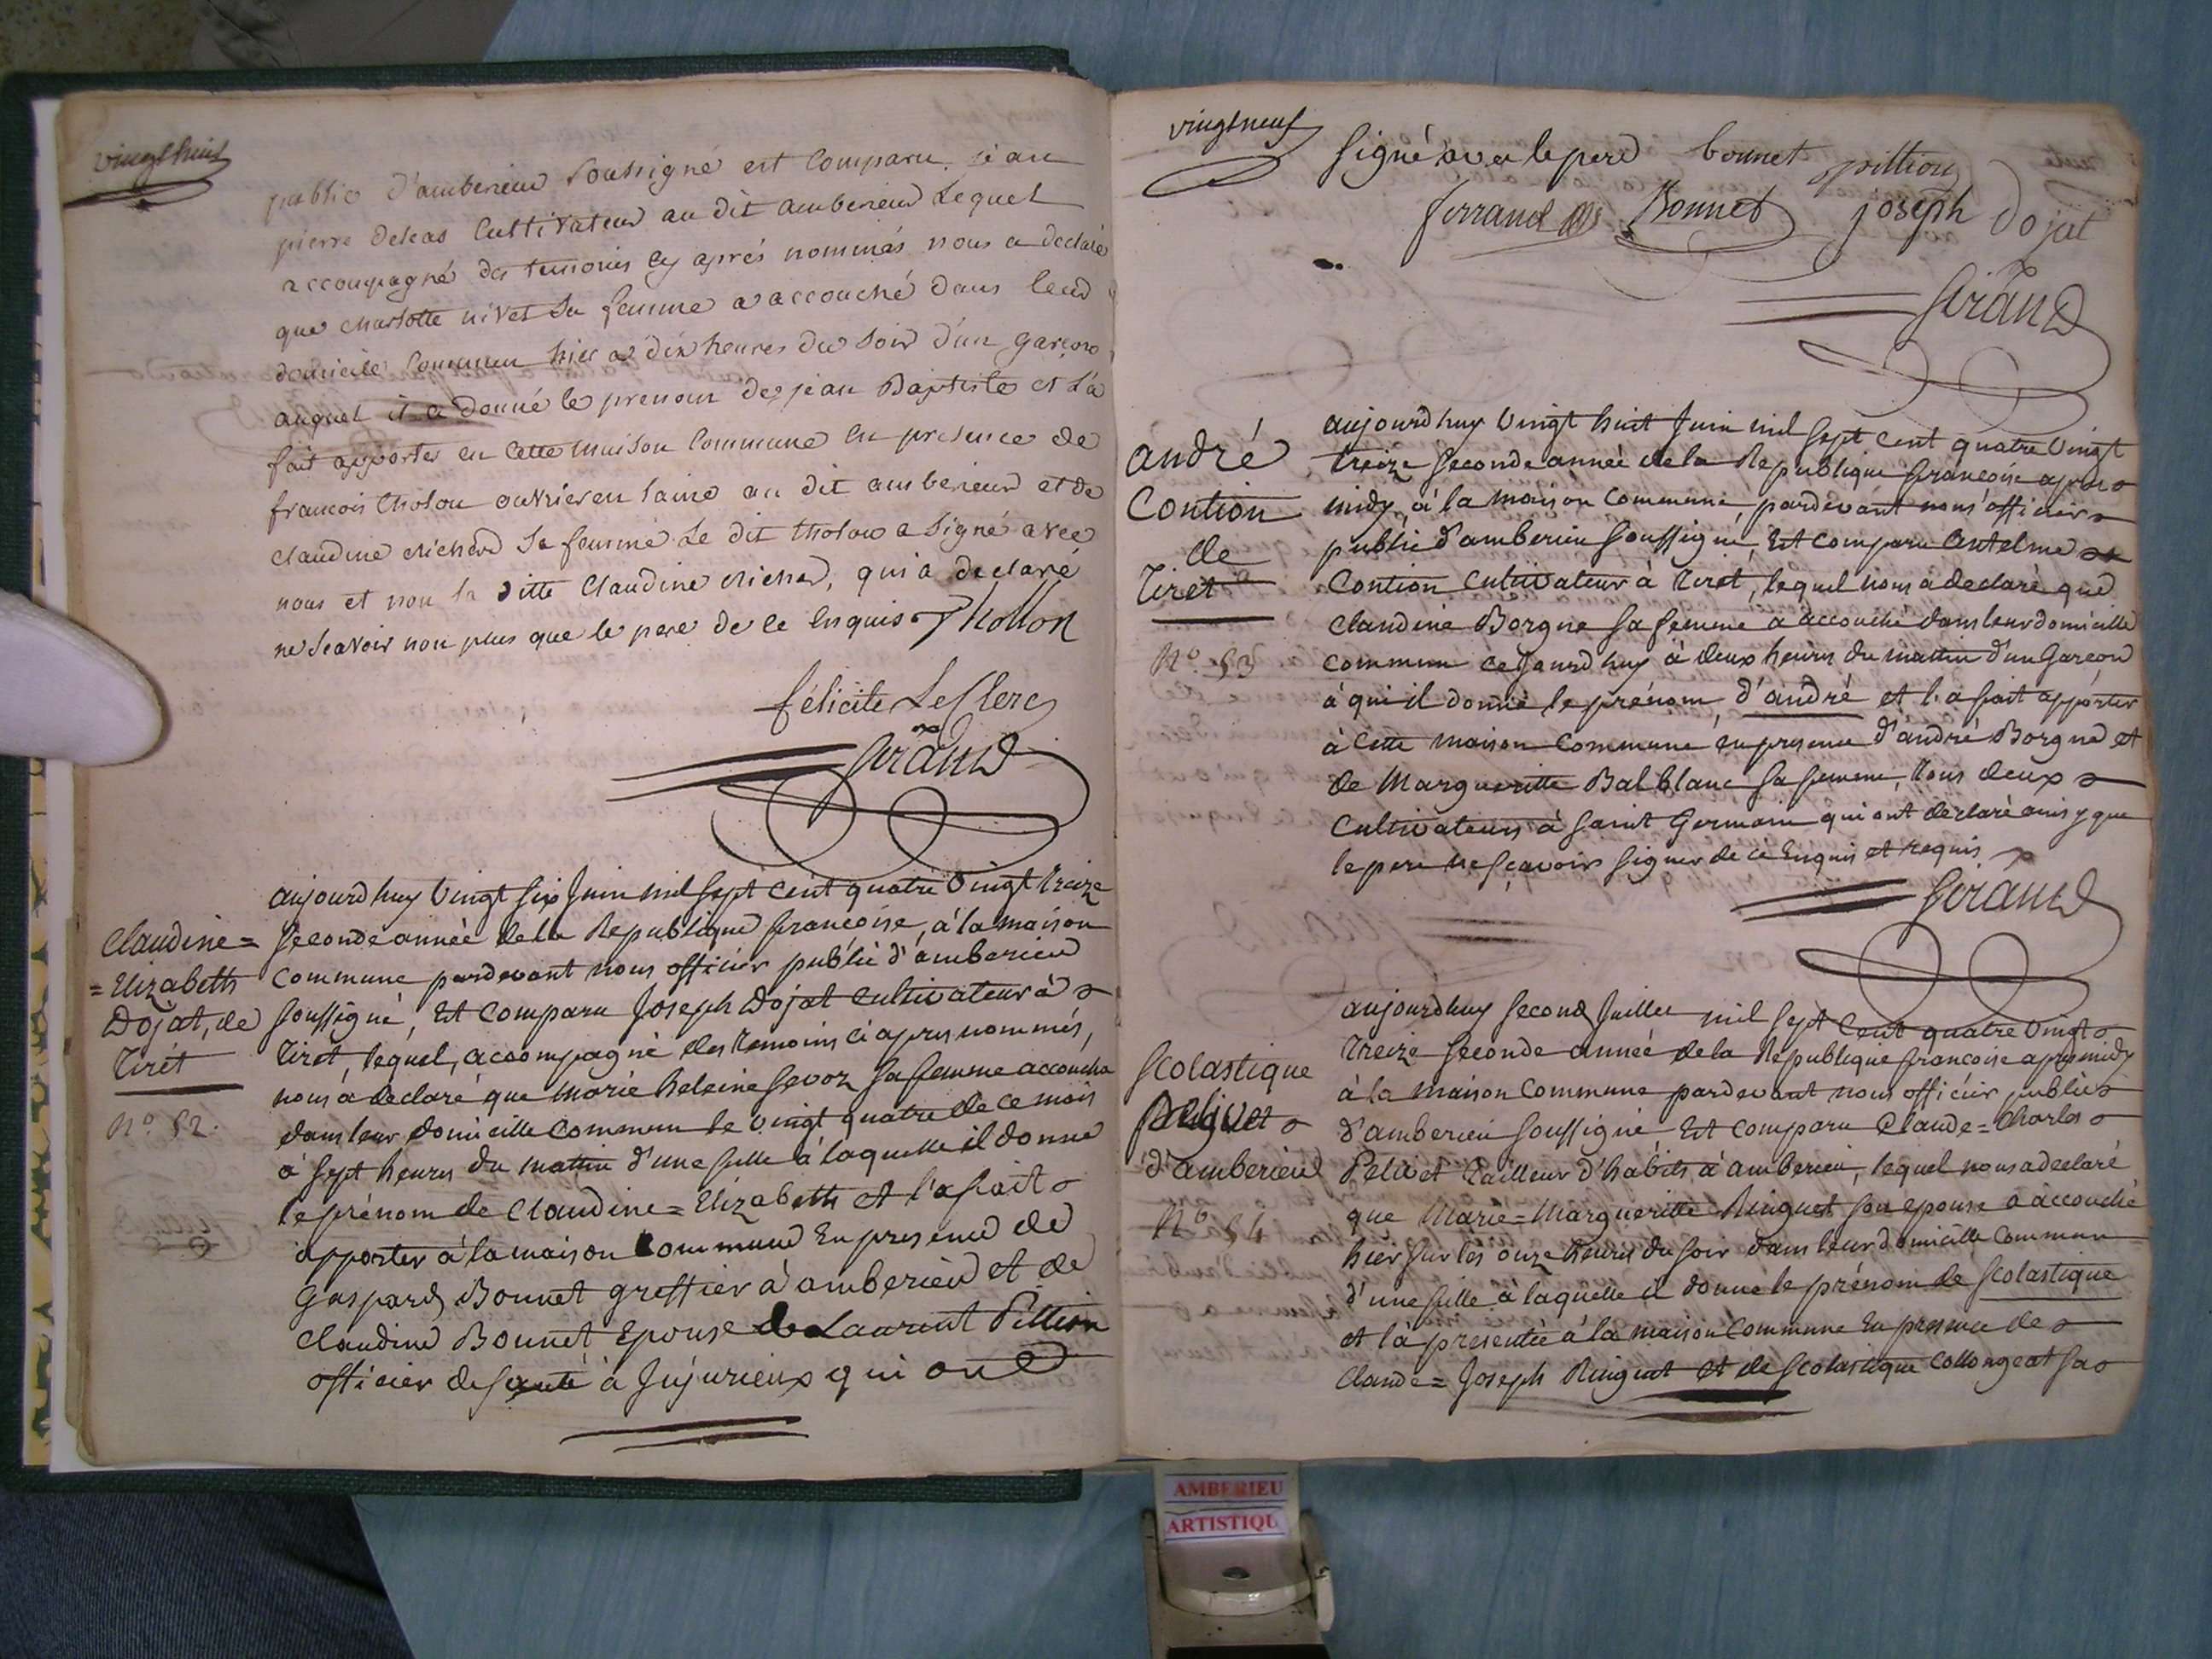 vingt huit
public d'amberieu soussigné est Comparu jean
pierre deleas Cultivateur au dit amberieu Lequel
accompagné des temoins cy aprés nommés nous a declaré
que charlotte nivet Sa femme a accouché dans leur
domicile Commun hier a dix heures du soir d'un garçon
auquel il a donné le prenom de jean Baptiste et L'a
fait apporter en Cette maison Commune en presence de
francois tholon ouvrier en laine au dit amberieu et de
claudine Sa femme Le dit tholon a Signé avec
nous et non la ditte Claudine, qui a declaré
ne Scavoir non plus que le pere de ce Enquis Thollon
félicite LeClerc
Girãud
Claudine=
=Elizabeth
Dojat, de
Tirét
N.º 52.
aujourd huy Vingt six Juin mil sept cent quatre Vingt treize
seconde année de la Republique francoise, à la maison
Commune pardevant nous officier public d'amberieu
soussigné, Est comparu Joseph Dojat cultivateur à
Tiret, lequel, accompagné des temoins ci apres nommés,
nous a declaré que marie heleine sevoz sa femme accoucha
dans leur domicille commun le vingt quatre de ce mois
à sept heures du mattin d'une fille à laquelle il donne
le prénom de Claudine=Elizabeth et l'a fait
apporter à la maison Commune En presence de
Gaspard Bonnet greffier à amberieu et de
Claudine Bonnet Epouse de Laurent Pittion
officier de santé à Jujurieux qui ont
vingt neuf
signé avec le pere bonnet pittion
ferrand Bonnet joseph dojat
Girãud
andré
Contion
de
Tiret
N.º 53
aujourd huy Vingt huit Juin mil sept cent quatre Vingt
treize seconde année de la Republique francoise apres
midy, à la maison Commune, pardevant nous officier
public d'amberieu soussigné, Est comparu Antelme
Contion cultivateur à Tiret, lequel nous a declaré que
Claudine Borgne sa femme a accouché dans leur domicille
commun cejourd huy à deux heures du mattin d'un Garcon
à qui il donne le prénom d'andré et l'a fait apporter
à cette maison Commune en presence d'andré Borgne et
de Margueritte Balblanc sa femme, tous deux
Cultivateurs à saint Germain qui ont declaré ainsy que
le pere ne sçavoir signer de ce Enquis et requis
Girãud
Scolastique
Pelivet
d'amberieu
N.º 54
aujourdhuy second Juillet mil sept Cent quatre Vingt
treize seconde année de la Republique francoise apres midy
à la maison Commune pardevant nous officier public
d'amberieu soussigné Est comparu Claude=Charles
Pelivet tailleur d'habits à amberieu, lequel nous a declaré
que Marie=Margueritte Ringuet son epouse a accouché
hier sur les onze heures du soir dans leur domicille commun
d'une fille à laquelle il donne le prénom de scolastique
et l'a presentée à la maison Commune En presence de
Claude=Joseph Ringuet et de scolastique Collongeat sa
AMBERIEU
ARTISTIQU